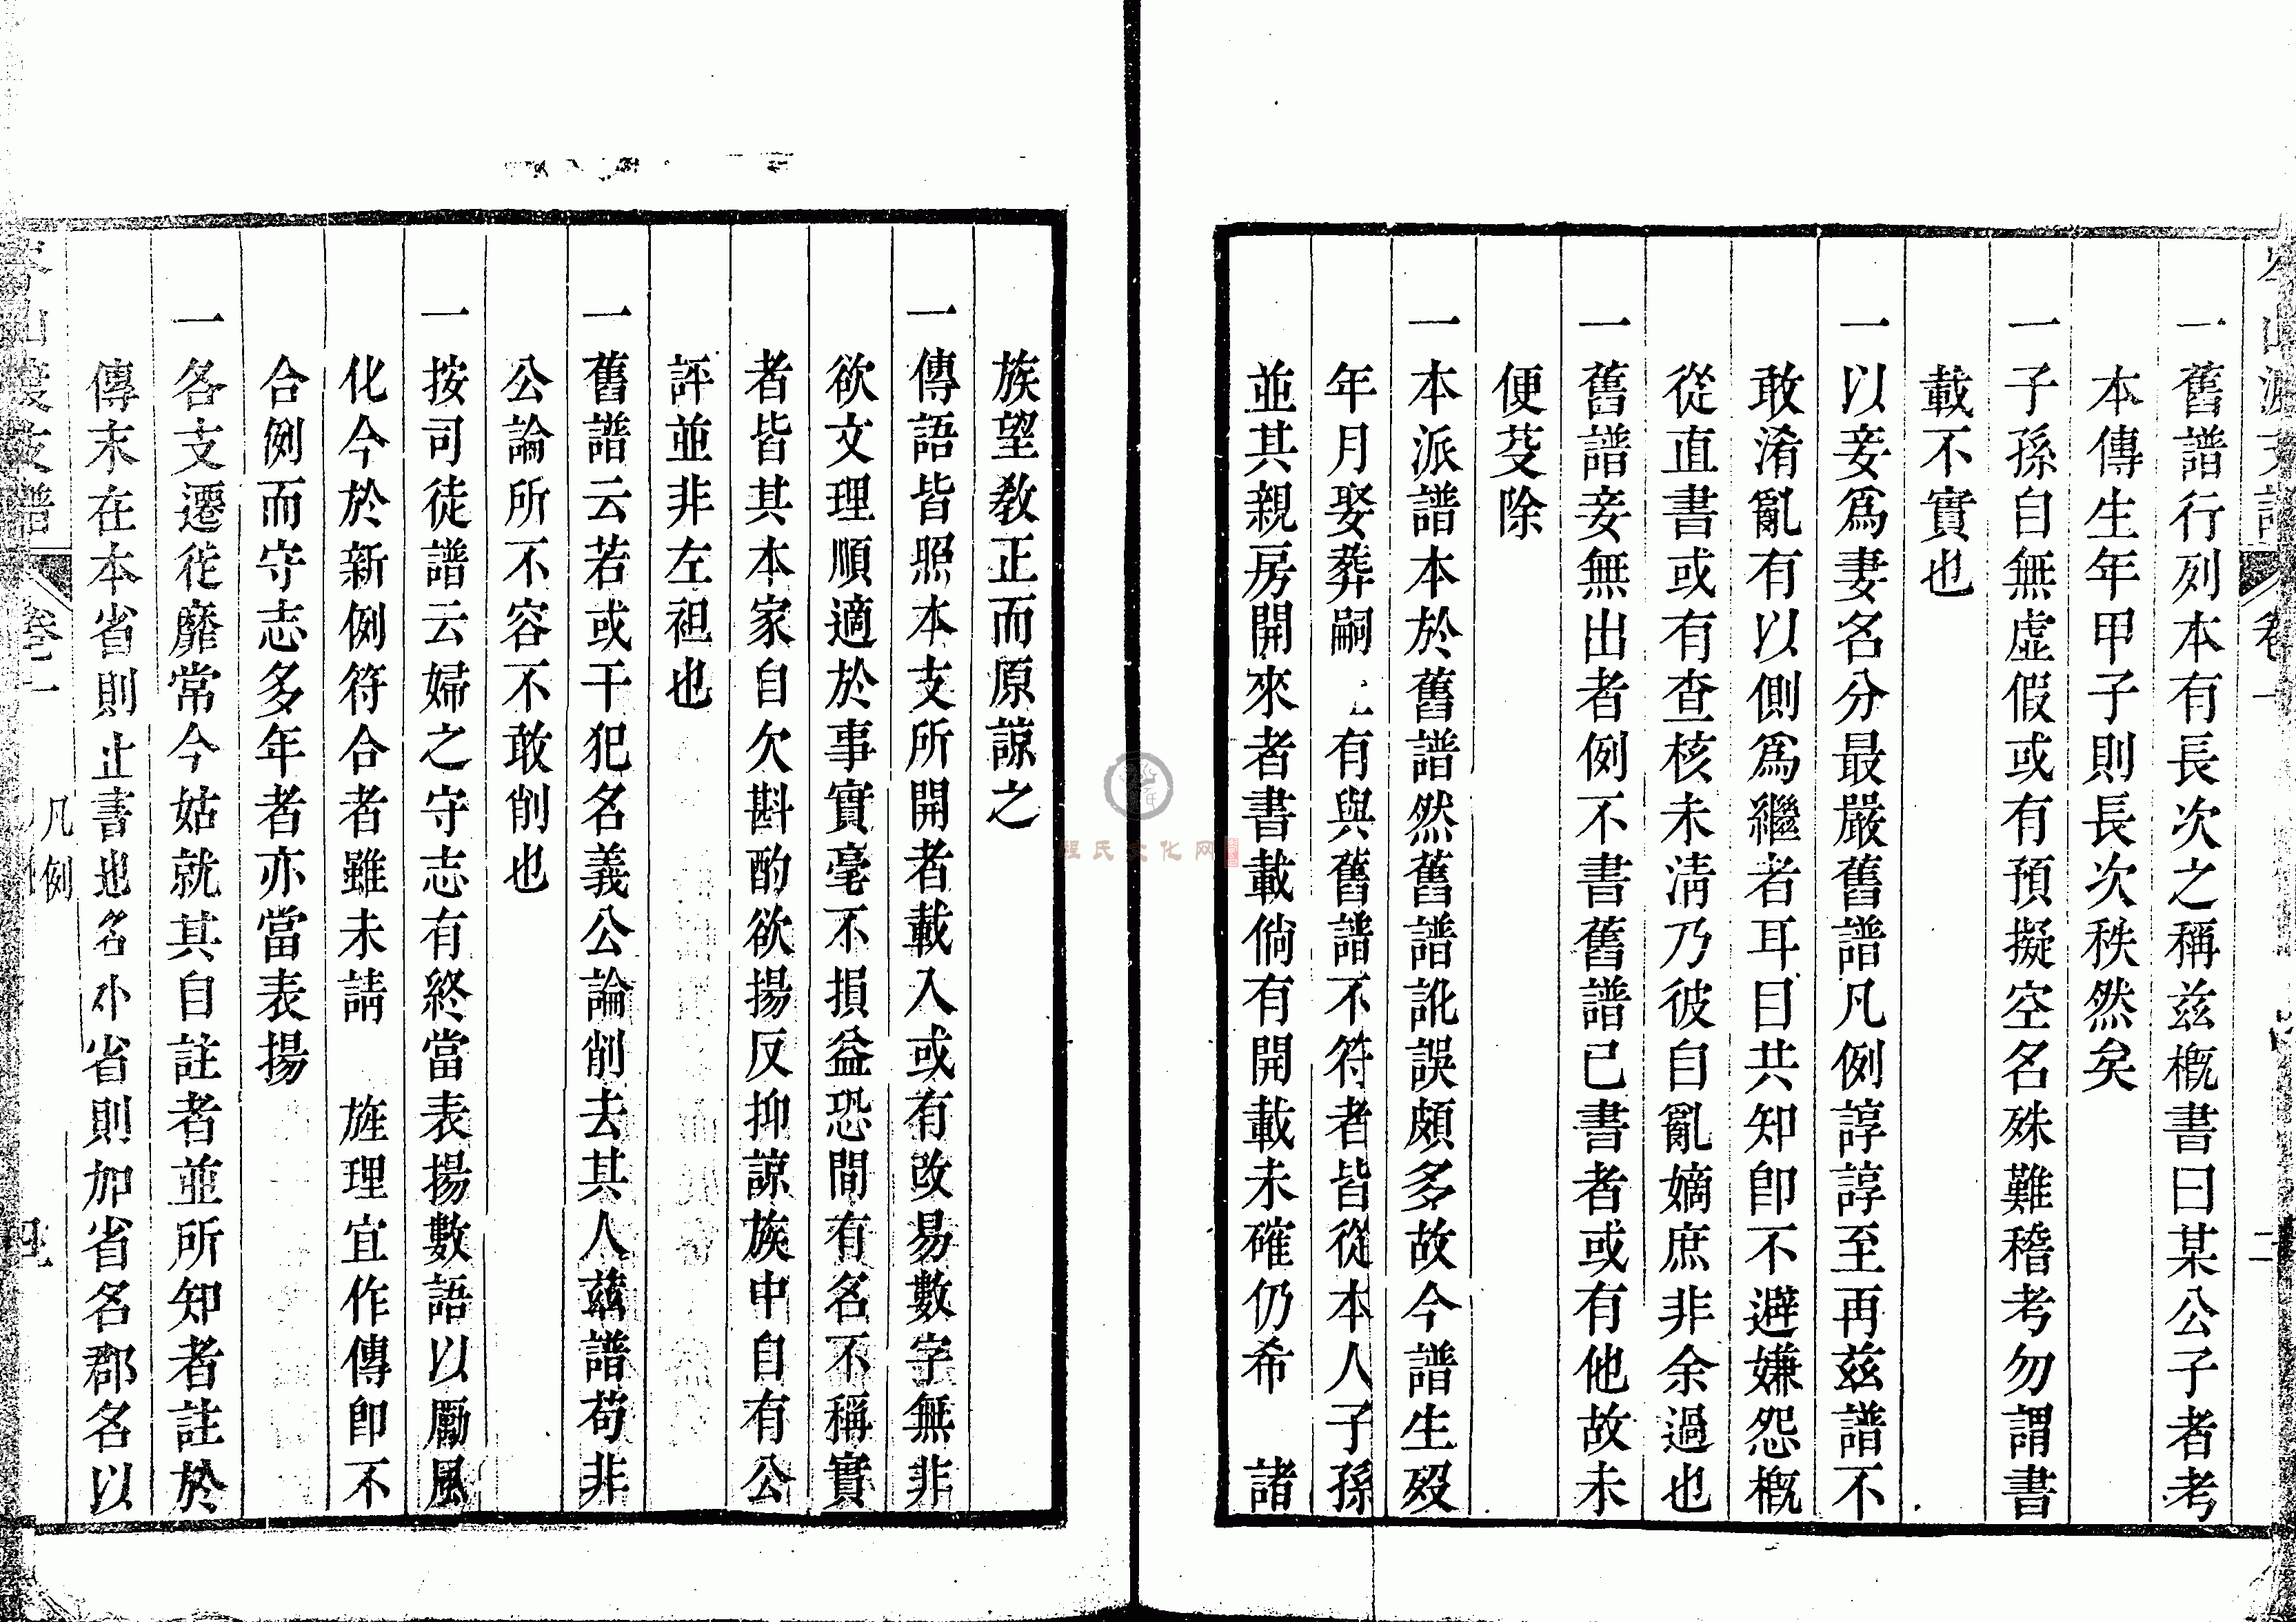 一舊譜行列本有長次之稱茲槪書曰某公子者考
本傳生年甲子則長次秩然矣
一子孫自無虛假或有預擬空名殊難稽考勿謂書
載不實也
一以妾爲妻名分最嚴舊譜凡例諄諄至再茲譜不
敢淆亂有以側爲繼者耳目共知卽不避嫌怨槪
從直書或有查核未淸乃彼自亂嫡庶非余過也
一舊譜妾無出者例不書舊譜已書者或有他故未
便芟除
一本派譜本於舊譜然舊譜訛誤頗多故今譜生歿
年月娶葬嗣 有與舊譜不符者皆從本人子孫
並其親房開來者書載倘有開載未確仍希 諸
二
族望敎正而原諒之
一傳語皆照本支所開者載入或有改易數字無非
欲文理順適於事實毫不損益恐間有名不稱實
者皆其本家自欠斟酌欲揚反抑諒族中自有公
評並非左袒也
一舊譜云若或干犯名義公論削去其人茲譜苟非
公論所不容不敢削也
一按司徒譜云婦之守志有終當表揚數語以勵風
化今於新例符合者雖未請 旌理宜作傳卽不
合例而守志多年者亦當表揚
一各支遷徙靡常今姑就其自註者並所知者註於
傳末在本省則止書也名外省則加省名郡名以
支譜
卷二
凡例
四
程氏文化网